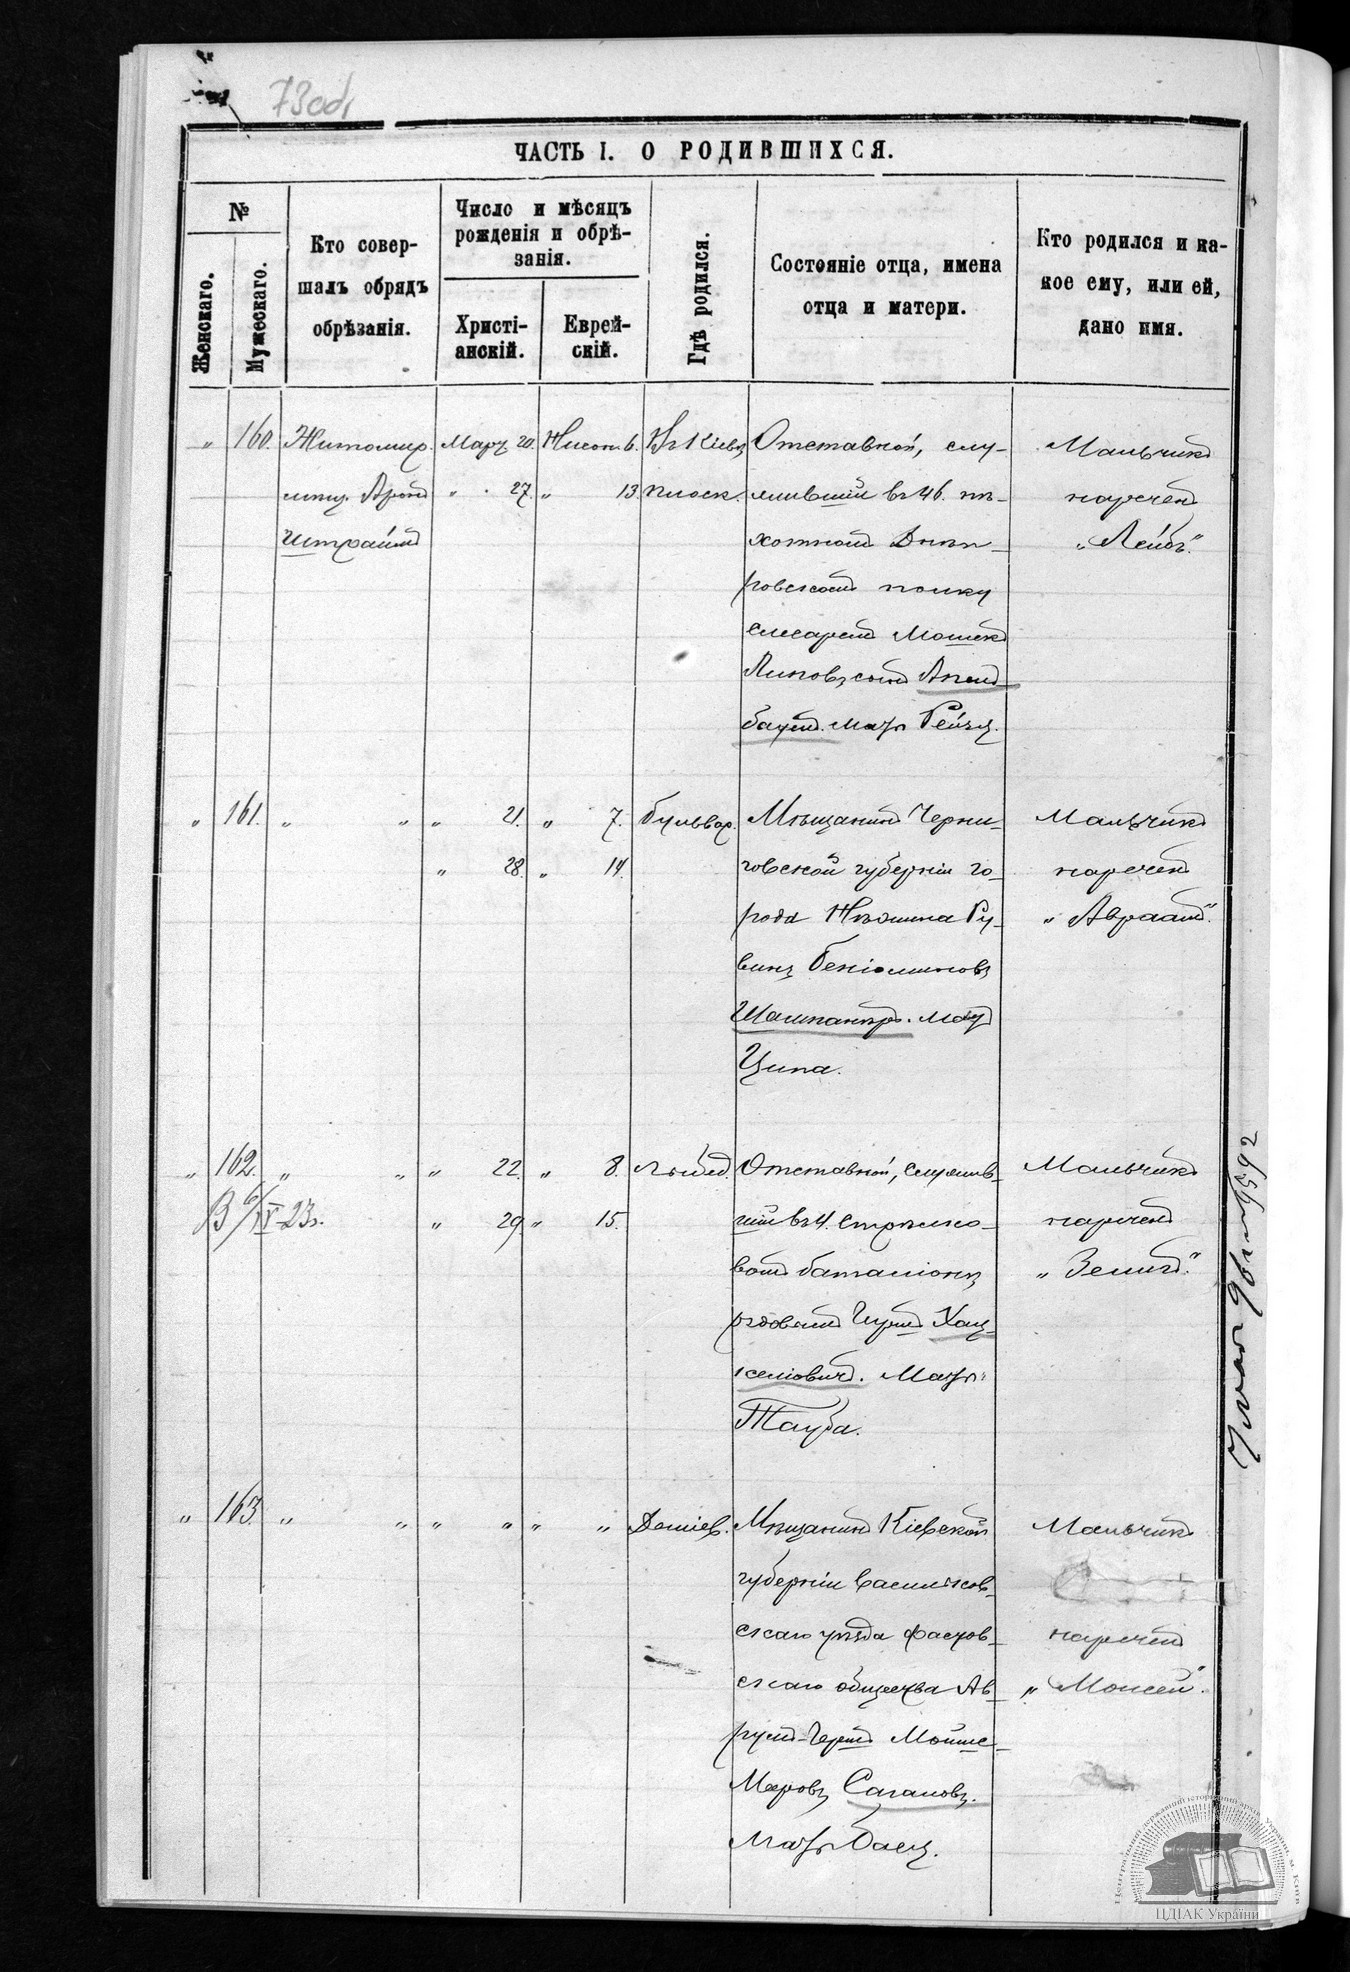 73об.
ЧАСТЬ I. О РОДИВШИХСЯ.
№
Женскаго.
Мужескаго.
Кто совер-
шалъ обрядъ
обрѣзанія.
Число и мѣсяцъ
рожденія и обрѣ-
занія.
Христі-
анскій.
Еврей-
скій.
Гдѣ родился.
Состояніе отца, имена
отца и матери.
Кто родился и ка-
кое ему, или ей,
дано имя.
" 160.
Житомир.
мѣщ. Аронъ
Штраймъ
Март 20.
" 27.
Нисон. 6.
" 13.
Въ Кіевѣ
плоск.
Отставной, слу-
жившій въ 46. пѣ-
хотномъ Днѣп-
ровскомъ полку
слесаремъ Мошко
сынъ Апель-
баумъ. Мать Рейзя.
Мальчикъ
нареченъ
"Лейбъ."
" 161. " "
" 21.
" 28.
" 7.
" 14.
бульвар.
Мѣщанинъ Черни-
говской губерніи го-
рода Нѣжина Ру-
винъ Беніоминовъ
Шампанеръ. Мать
Ципа.
Мальчикъ
нареченъ
"Авраамъ."
" 162. " "
В 6/IV-23г.
" 22.
" 29.
" 8.
" 15.
Лыбед.
Отставной, служив-
шій въ 4. стрѣлко-
вомъ баталіонѣ,
рядовымъ Хац-
келіовичъ. Мать
Тауба.
Мальчикъ
нареченъ
"Зелигъ."
" 163. " " " " " "
Мѣщанинъ Кіевской
губерніи Васильков-
скаго уѣзда Фастов-
скаго общества Ав-
румъ-Гершъ Мойше-
Меровъ Сагаловъ.
Мать Бася.
Мальчикъ
нареченъ
"Моисей."
9592
ЦДІАК України